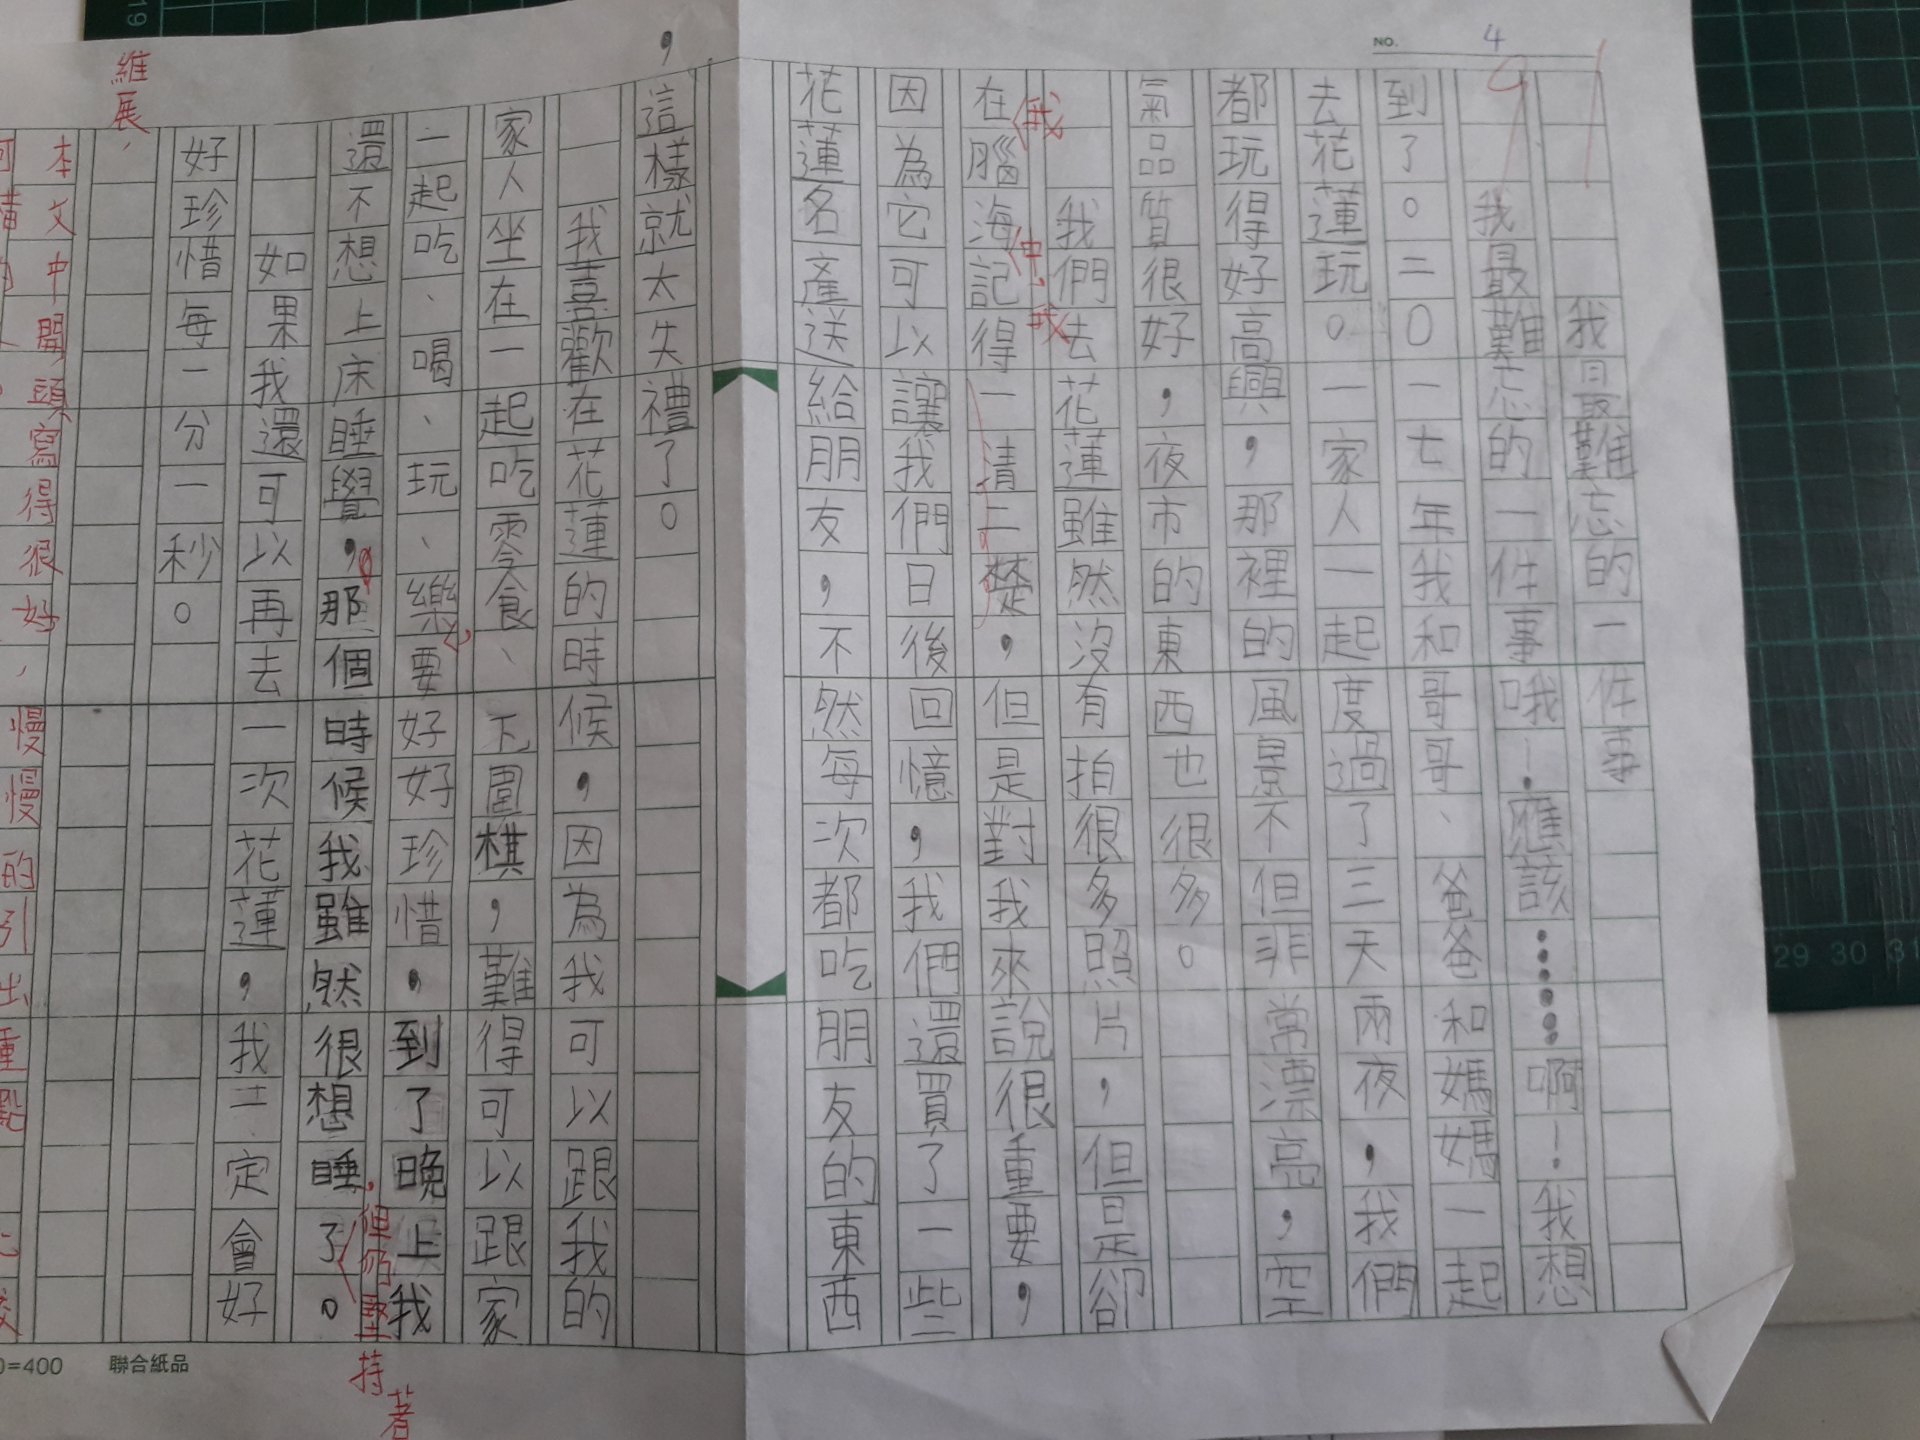 NO. 4
91
我最難忘的一件事
我最難忘的一件事哦！應該……啊！我想
到了。二〇一七年我和哥哥、爸爸和媽媽一起
去花蓮玩。一家人一起度過了三天兩夜，我們
都玩得好高興，那裡的風景不但非常漂亮，空
氣品質很好，夜市的東西也很多。
我們去花蓮雖然沒有拍很多照片，但是卻
在腦海記得一清二楚，但是對我來說很重要，
我
中，我
因為它可以讓我們日後回憶，我們還買了一些
花蓮名產送給朋友，不然每次都吃朋友的東西
，
這樣就太失禮了。
我喜歡在花蓮的時候，因為我可以跟我的
家人坐在一起吃零食、下圍棋，難得可以跟家
一起吃、喝、玩、樂要好好珍惜，到了晚上我
還不想上床睡覺，那個時候我雖然很想睡了。
，但仍堅持著
如果我還可以再去一次花蓮，我一定會好
好珍惜每一分一秒。
維展，
本文中開頭寫得很好，慢慢的引出重點
=400 聯合紙品
29 30 31
19